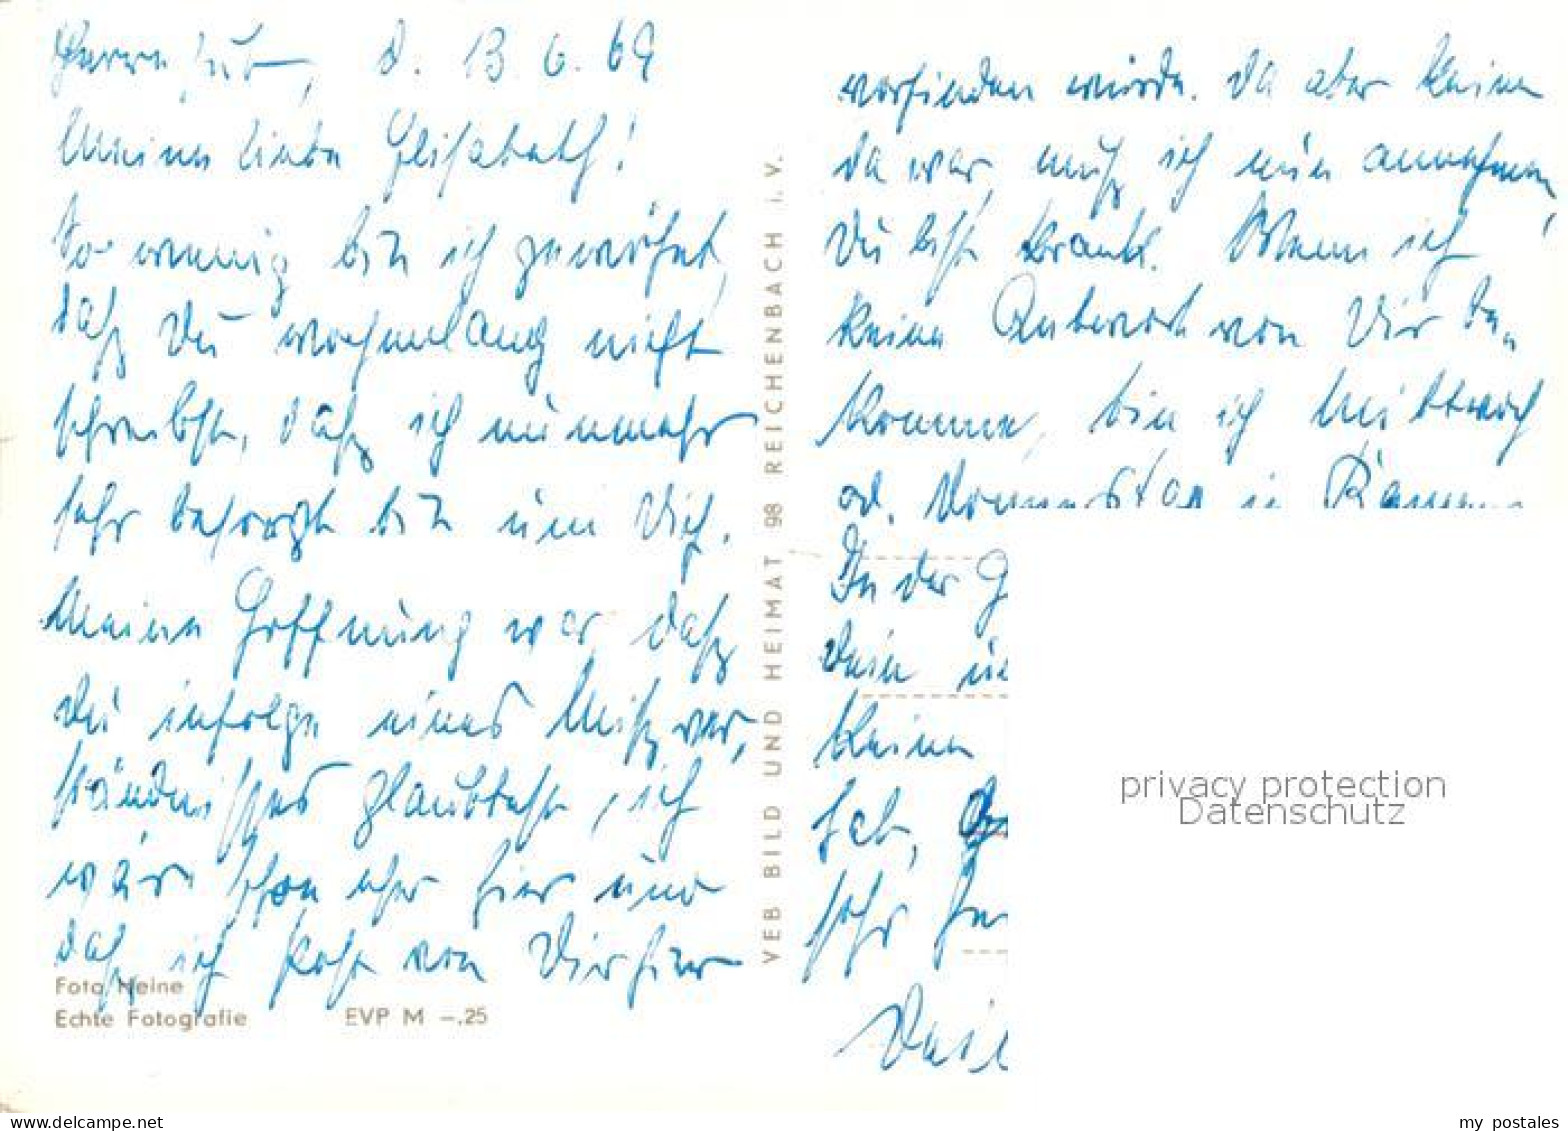 Herrnhut, d. 13. 6. 69
Meine liebe Elisabeth!
So wenig bin ich gewöhnt,
daß Du wochenlang nicht
schreibst, daß ich nunmehr
sehr besorgt bin um Dich.
Meine Hoffnung war, daß
Du infolge eines Mißver-
ständnisses glaubtest, ich
wäre schon eher hier und
daß ich Post von Dir hier
Foto Heine
Echte Fotografie EVP M –.25
VEB BILD UND HEIMAT 98 REICHENBACH i. V.
vorfinden würde. Da aber keine
da war, muß ich nun annehmen,
Du bist krank. Wenn ich
keine Antwort von Dir be-
komme, bin ich Mittwoch
od. Donnerstag in
In der G
Dein
keine
hab,
sehr
Dein
privacy protection
Datenschutz
my postales